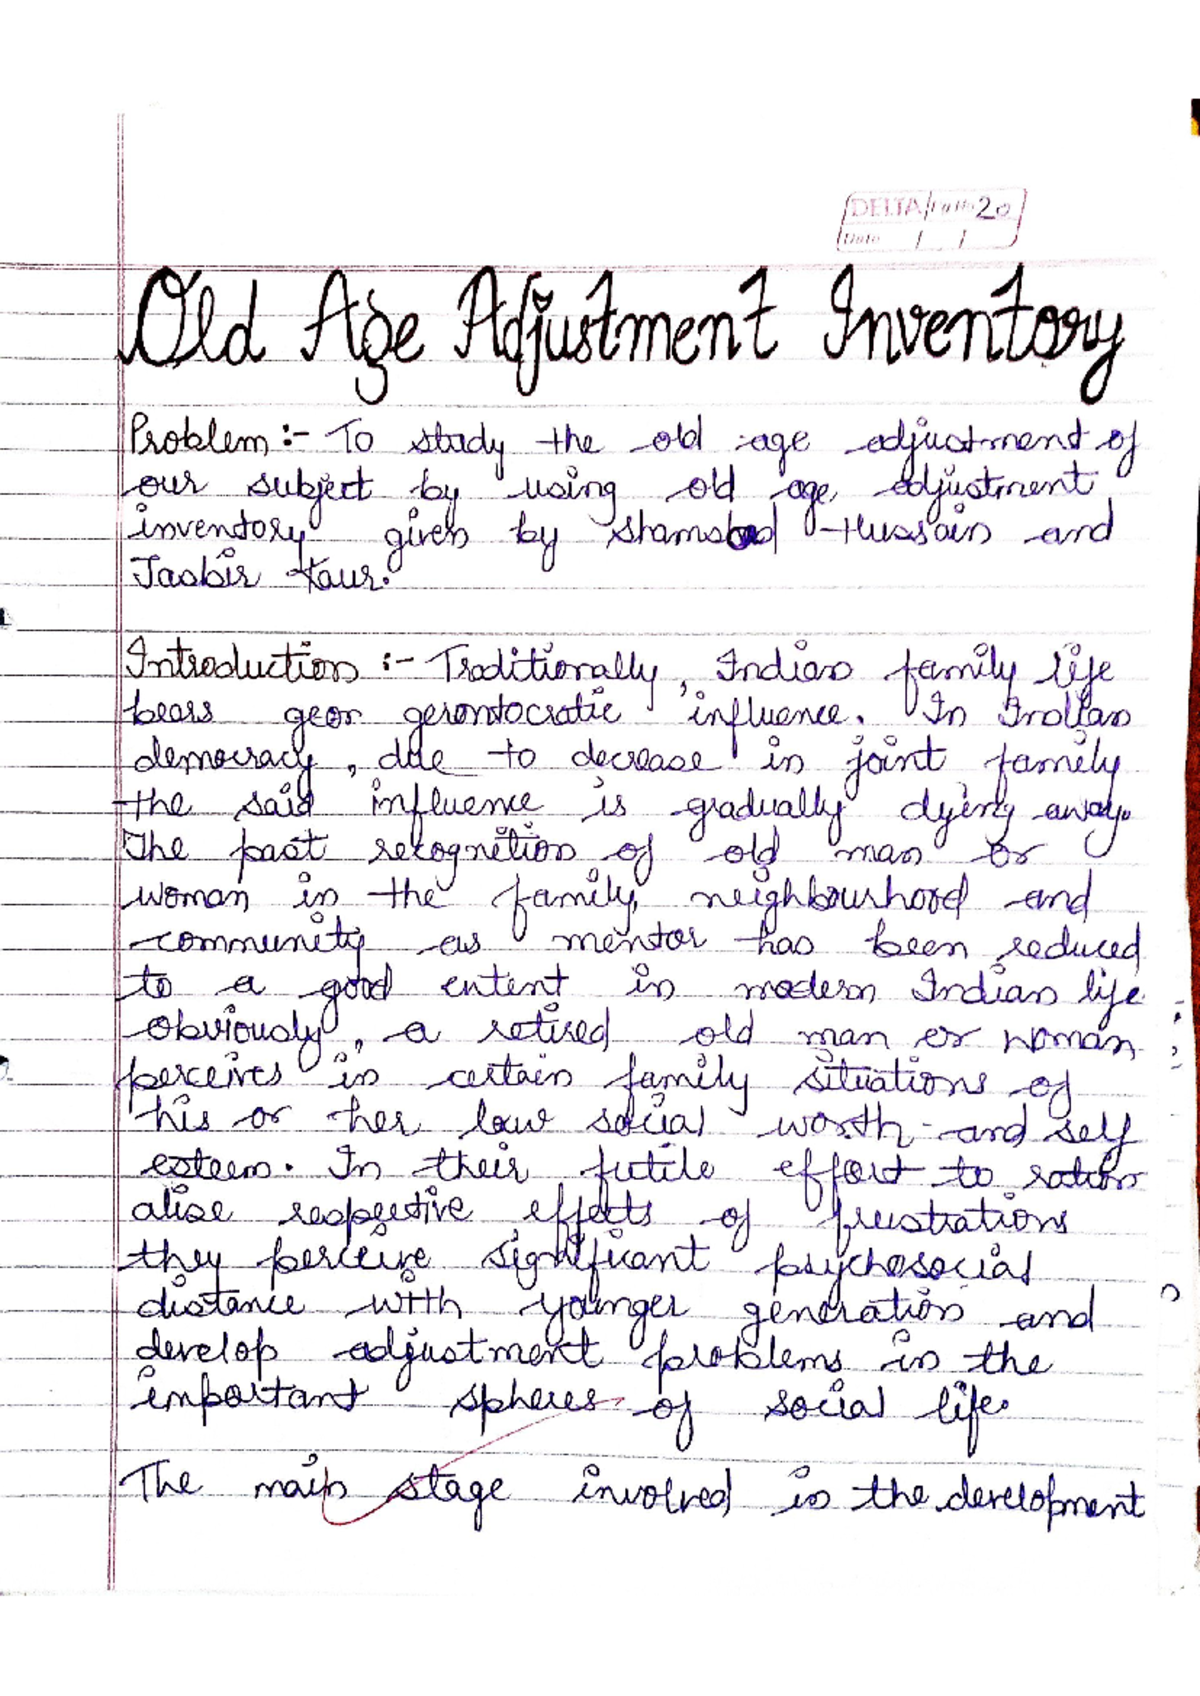 DELTA 20
Date / /
Old Age Adjustment Inventory
Problem :- To study the old age adjustment of
our subject by using old age adjustment
inventory given by Hussain and
Jasbir Kaur.
Introduction :- Traditionally, Indian family life
bears gerontocratic influence. In Indian
democracy, due to decrease in joint family
the said influence is gradually dying away.
The past recognition of old man or
woman in the family, neighbourhood and
community as mentor has been reduced
to a good entent in modern Indian life
obviously, a retired old man or woman
perceives in certain family situations of
his or her low social worth and self
esteem. In their futile effort to ration
alise respective effects of frustrations
they perceive significant psychosocial
distance with younger generation and
develop adjustment problems in the
important spheres of social life.
The main stage involved in the development